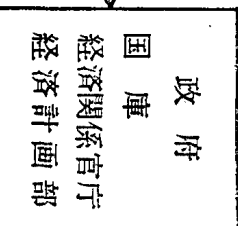 政府
国庫
経済関係官庁
経済計画部